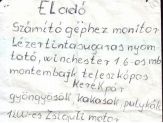 ELadó
Számító géphez monitor
Lézertintasugaras nyom
tató, winchester 16-os mb
montembajk teleszkópos
kerékpár
gyöngyösök, kakasok, putykák
1200-es Zsiguli motor